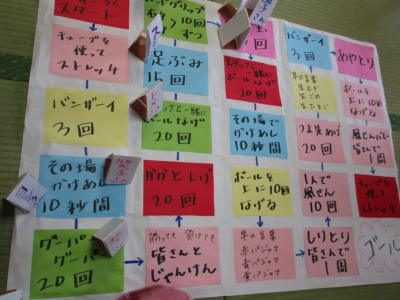 スタート
チューブを
使って
ストレッチ
バンザーイ
3回
その場
かけあし
10秒間
グーパー
グーパー
20回
勝っても 負けても
皆さんと
じゃんけん
かかと上げ
20回
20回
足ぶみ
15回
10回
ずつ
スタッフと
ボール一緒に
なげる
20回
その場で
かけあし
10秒間
ボールを
上に10回
なげる
早口言葉
赤パジャマ
青パジャマ
黄パジャマ
しりとり
皆さんで
1周
1人で
風せん
10回
つま先あげ
20回
早口言葉
生むぎ
生ごめ
生たまご
バンザーイ
3回
あやとり
ボールを
上に10回
なげる
風せんバレー
皆さんで
1周
チューブを
使って
ストレッチ
ゴール